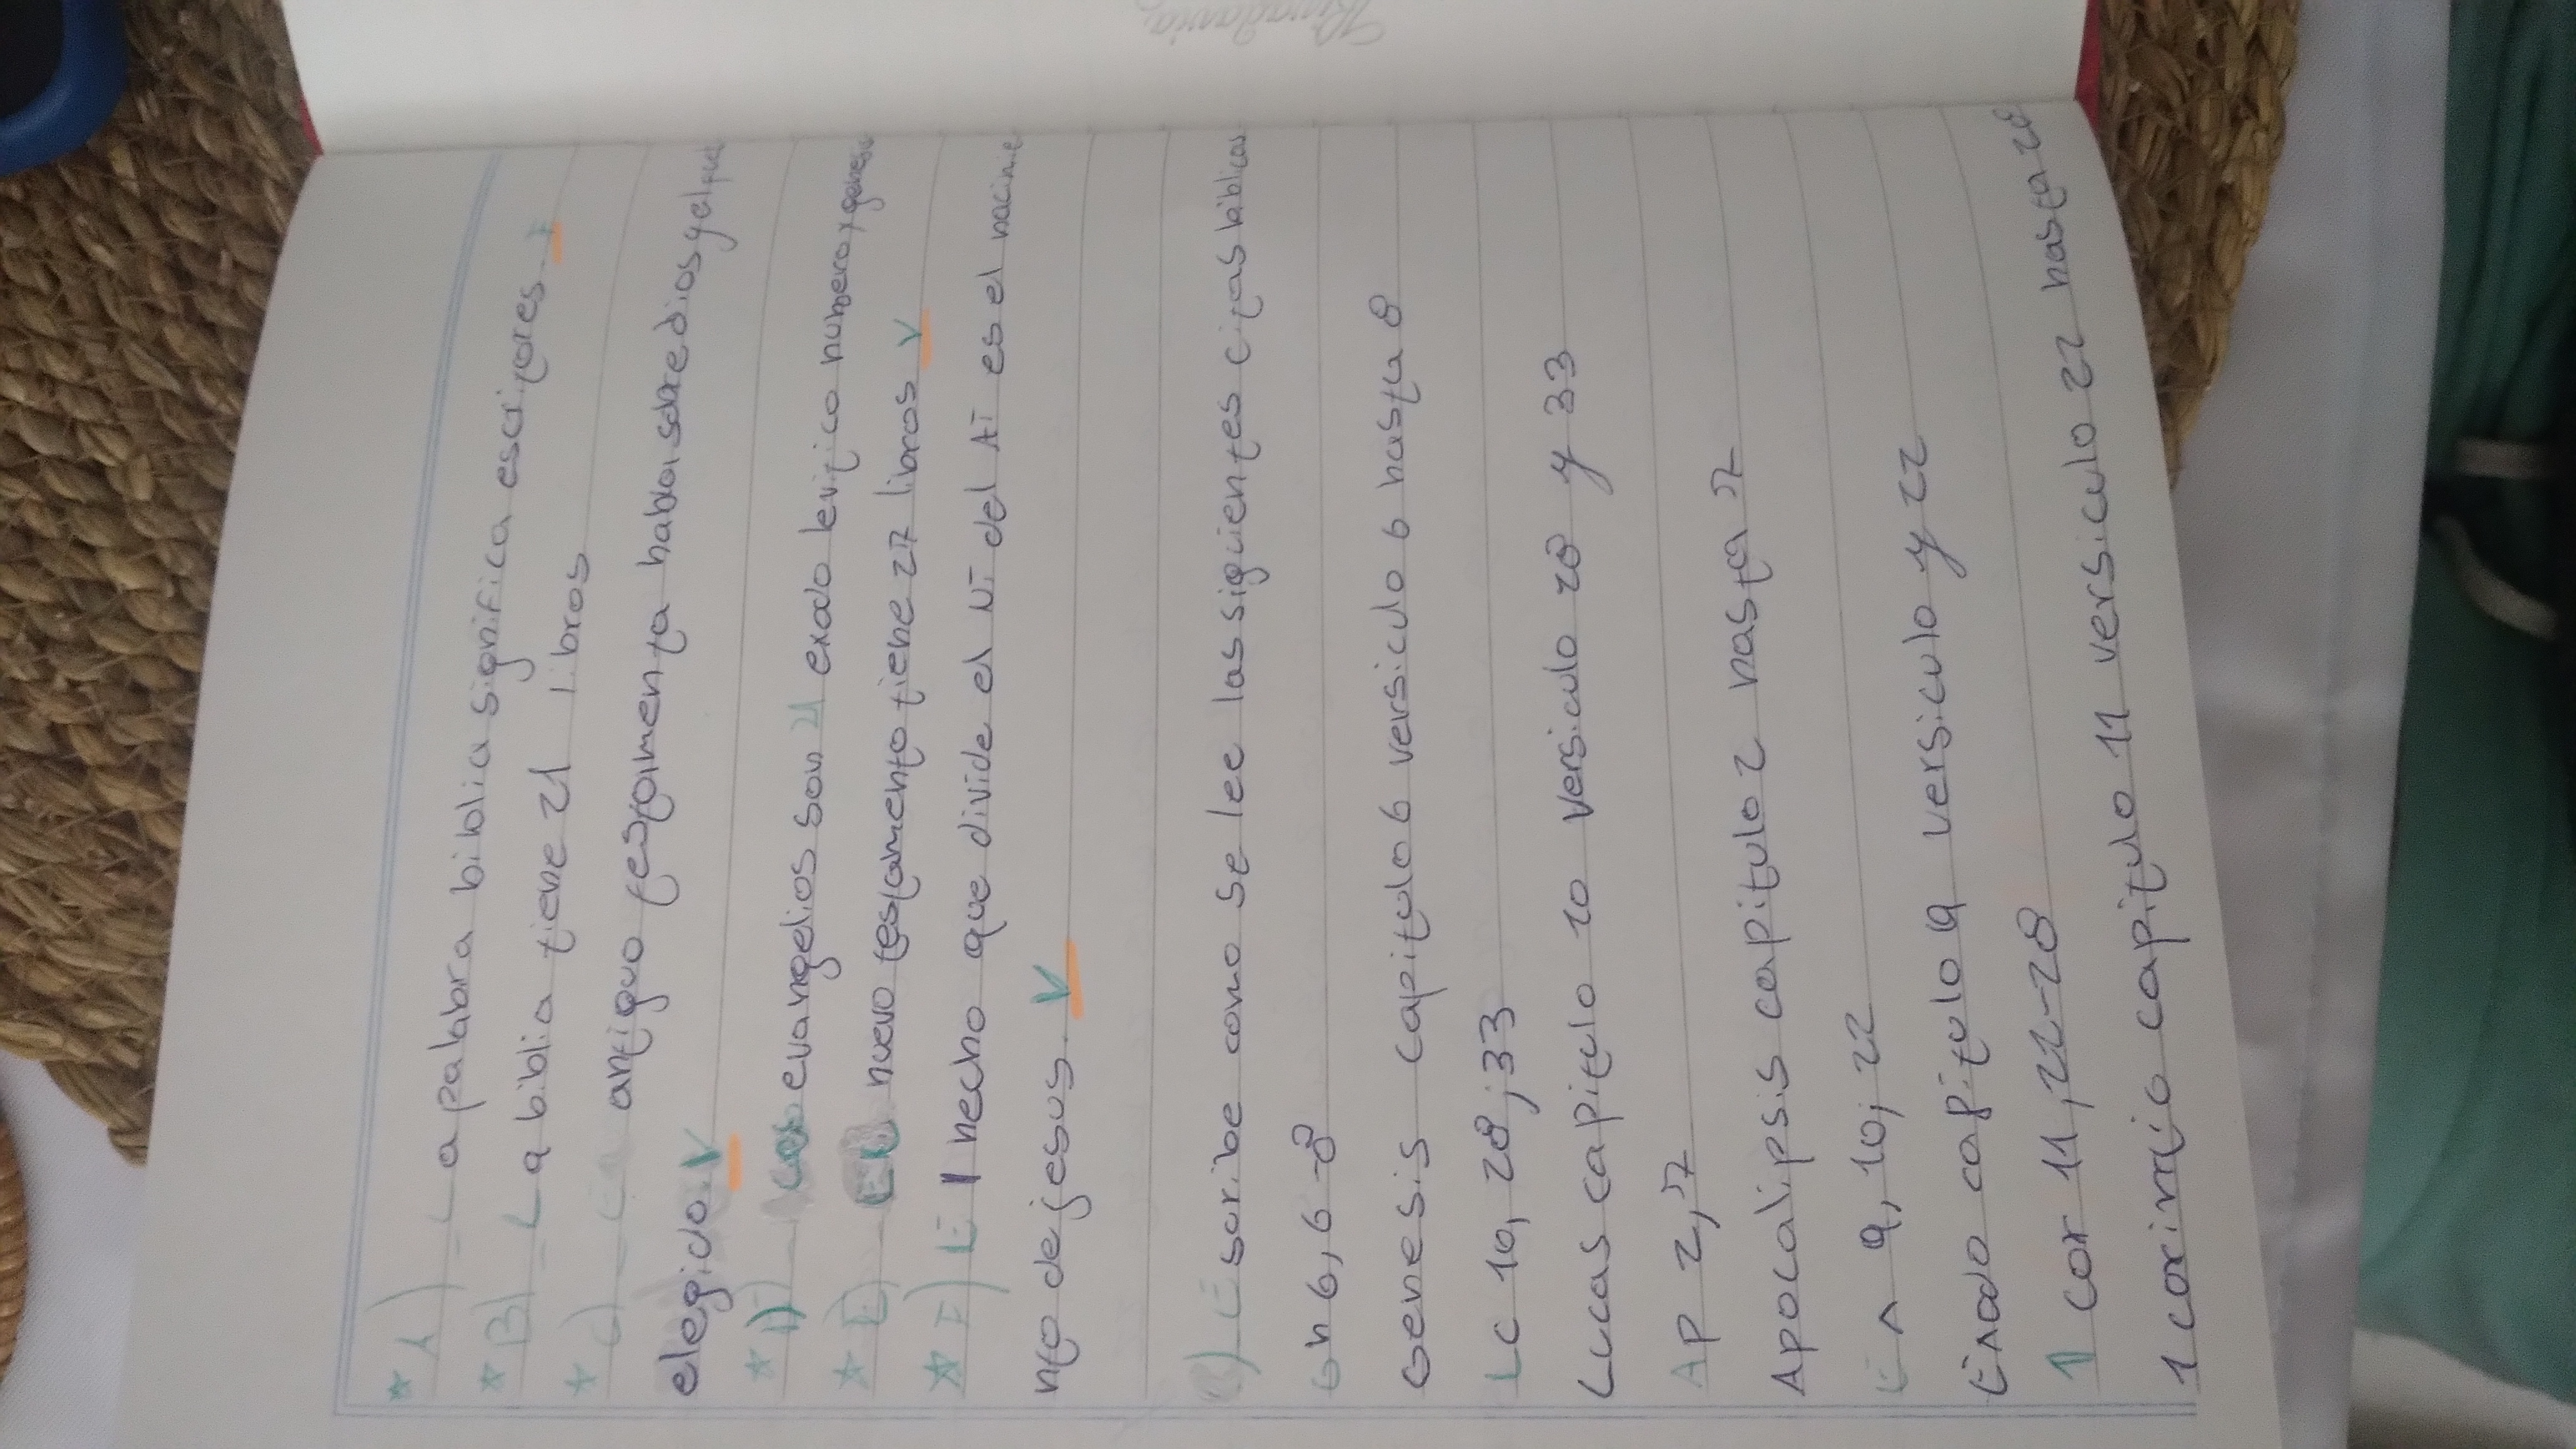 Rivadavia
* A) La palabra biblica significa escritores. F
* B) La biblia tiene 21 libros
* C) antiguo testaimenta habla sobre dios y el
elegido. V
* D) Los evangelios son 21 exodo levitico numero y genesis
* E) El nuevo testamento tiene 27 libros V
* F) El hecho que divide el NT del AT es el nacimie
nto de jesus. V
) Esoribe como se lee las siguientes citas biblicas
Gn 6, 6-8
Genesis capitulo 6 versiculo 6 hasta 8
LC 10, 28; 33
Luccas capitulo 10 versiculo 28 y 33
AP 2, 7
Apocalipsis capitulo 2 hasta 7
Ex 9, 10; 22
Exodo capitulo 9 versiculo y 22
1 cor 11, 22-28
1 corintio capitulo 11 versiculo 22 hasta 28